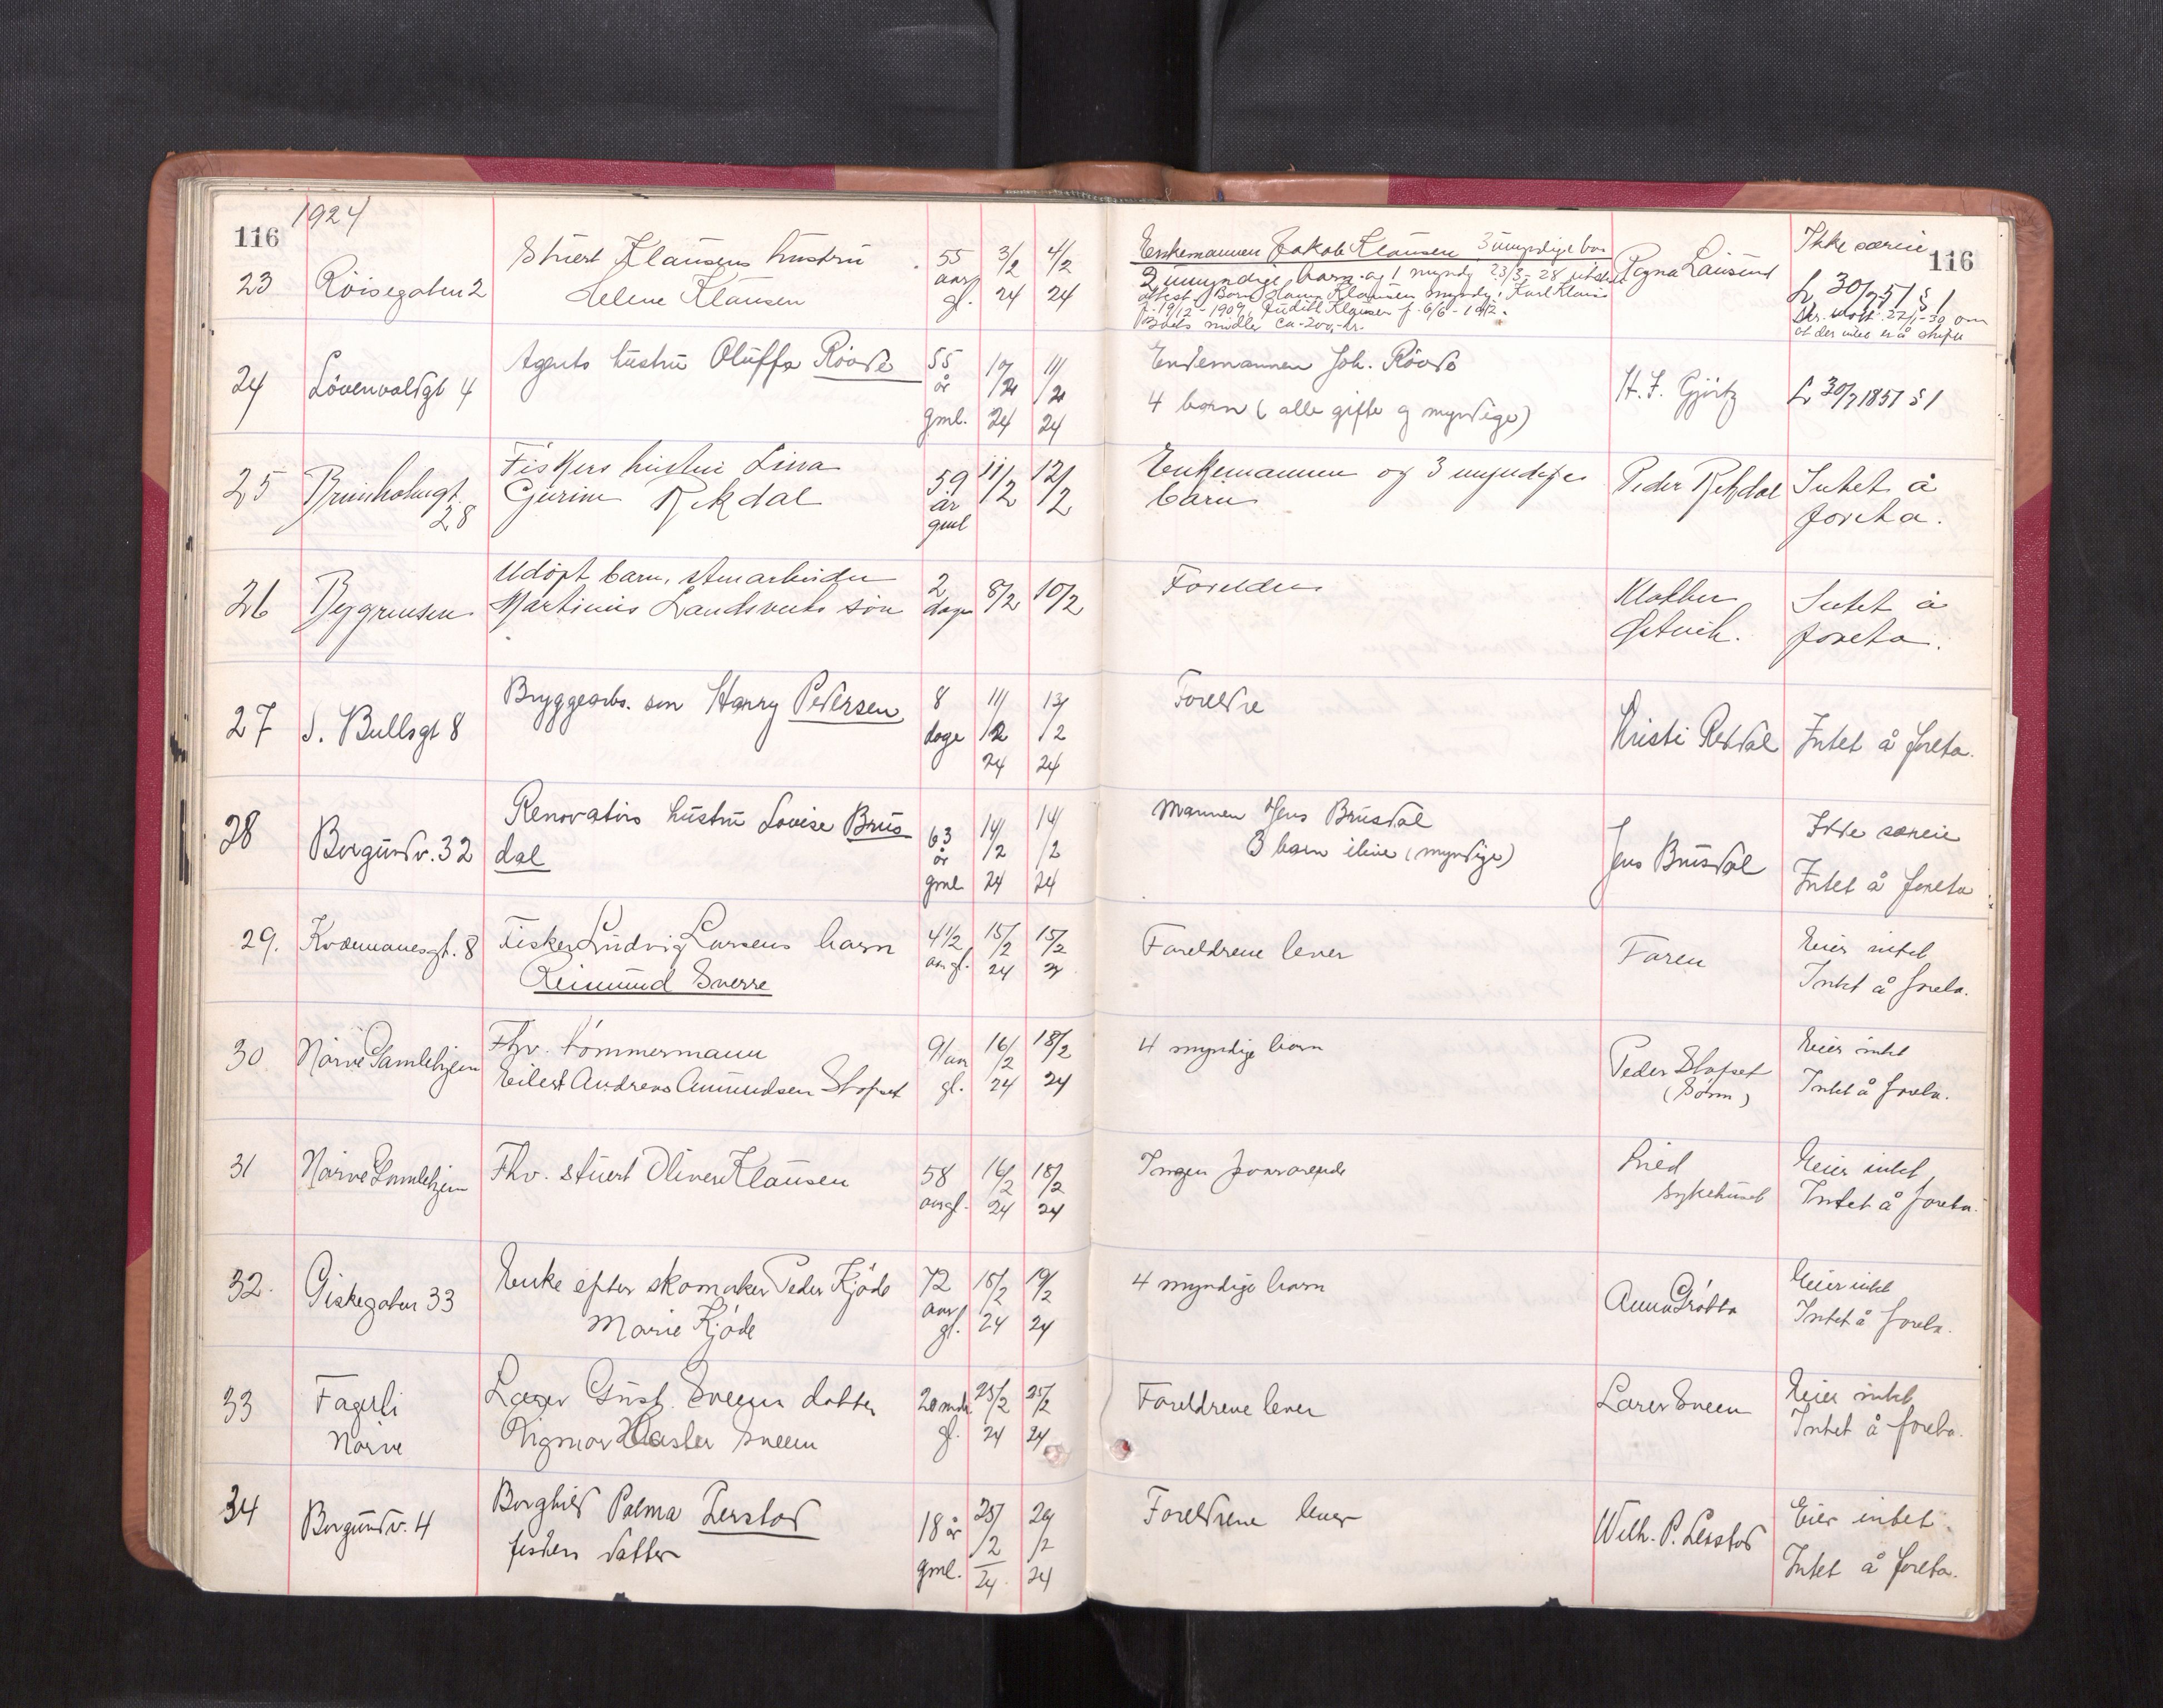 116
1924
116
23
Röisegaten 2
Stuert Klausens hustru
Helene Klausen
55
aar
gl.
3/2
24
4/2
24
Enkemannen Jakob Klausen 3 umyndige barn
2 umyndige barn og 1 myndig 23/3-28
attest. Klausen myndig, Karl Klausen
f. 19/12-1909, Judith Klausen f. 6/6-1912.
Boets midler ca. 200,- kr.
Ragna Lausund
Ikke særeie
L 30/7 51 § 1
22/1-30 om
at der intet er å skifte
24
Lövenvoldgt 4
Agents hustru Oluffa Röode
55
år
gml.
10/
/2
24
11/
/2
24
Enkemannen Joh. Röode
4 barn (alle gifte og myndige)
H. F. Gjörtz
L 30/7 1851 § 1
25
Brunholmgt.
28
Fiskers hustru Lina
Gurine Rekdal
59
år
gml
11/2
12/2
Enkemannen og 3 myndige
barn
Peder Rekdal
Intet å
foreta.
26
Udöpt barn, stenarbeider
Martinus Landsverks sön
2
dage
8/2
10/2
Foreldre
Klokker
Intet å
foreta.
27
J. Bullsgt 8
Bryggearb. sön Harry Pedersen
8
dage
11/
/2
24
13/
/2
24
Foreldre
Kristi Rekdal
Intet å foreta.
28
Borgundv. 32
Renovatörs hustru Lovise Brus
dal
63
år
gml
14/
/2
24
14/
/2
24
Mannen Jens Brusdal
3 barn ilive (myndige)
Jens Brusdal
Ikke særeie
Intet å foreta
29.
Kvennanesgt. 8
Fisker Ludvig Larsens barn
Reimund Sverre
4 1/2
aar gl.
15/2
24
15/2
24
Foreldrene lever
Faren
Eier intet
Intet å foreta.
30.
Nörve Gamlehjem
Fhv. tömmermann
Eilert Andreas Amundsen Slopset
91 aar
gl.
16/2
24
18/2
24
4 myndige barn
Peder Slopset
(Sönn)
Eier intet
Intet å foreta.
31
Nörve Gamlehjem
Fhv. stuert Oliver Klausen
58
aar gl.
16/2
24
18/2
24
Ingen
sykehuset
Eier intet
Intet å foreta.
32.
Giskegaten 33
Enke efter skomaker Peder Kjöde
Marie Kjöde
72
aar
gl.
15/2
24
19/2
24
4 myndige barn
Anna Grötta
Eier intet
Intet å foreta.
33
Fagerli
Nörve
Gust. Sveens datter
Rigmor Sveen
20 mdr
gl.
25/2
24
25/2
24
Foreldrene lever
Sveen
Eier intet
Intet å foreta.
34
Borgundv. 4
Borghild Palma Lerstad
fiskers datter
18 år
gml.
25/
/2
24
29/
/2
24
Foreldrene lever
Wilh. P. Lerstad
Eier intet.
Intet å foreta.